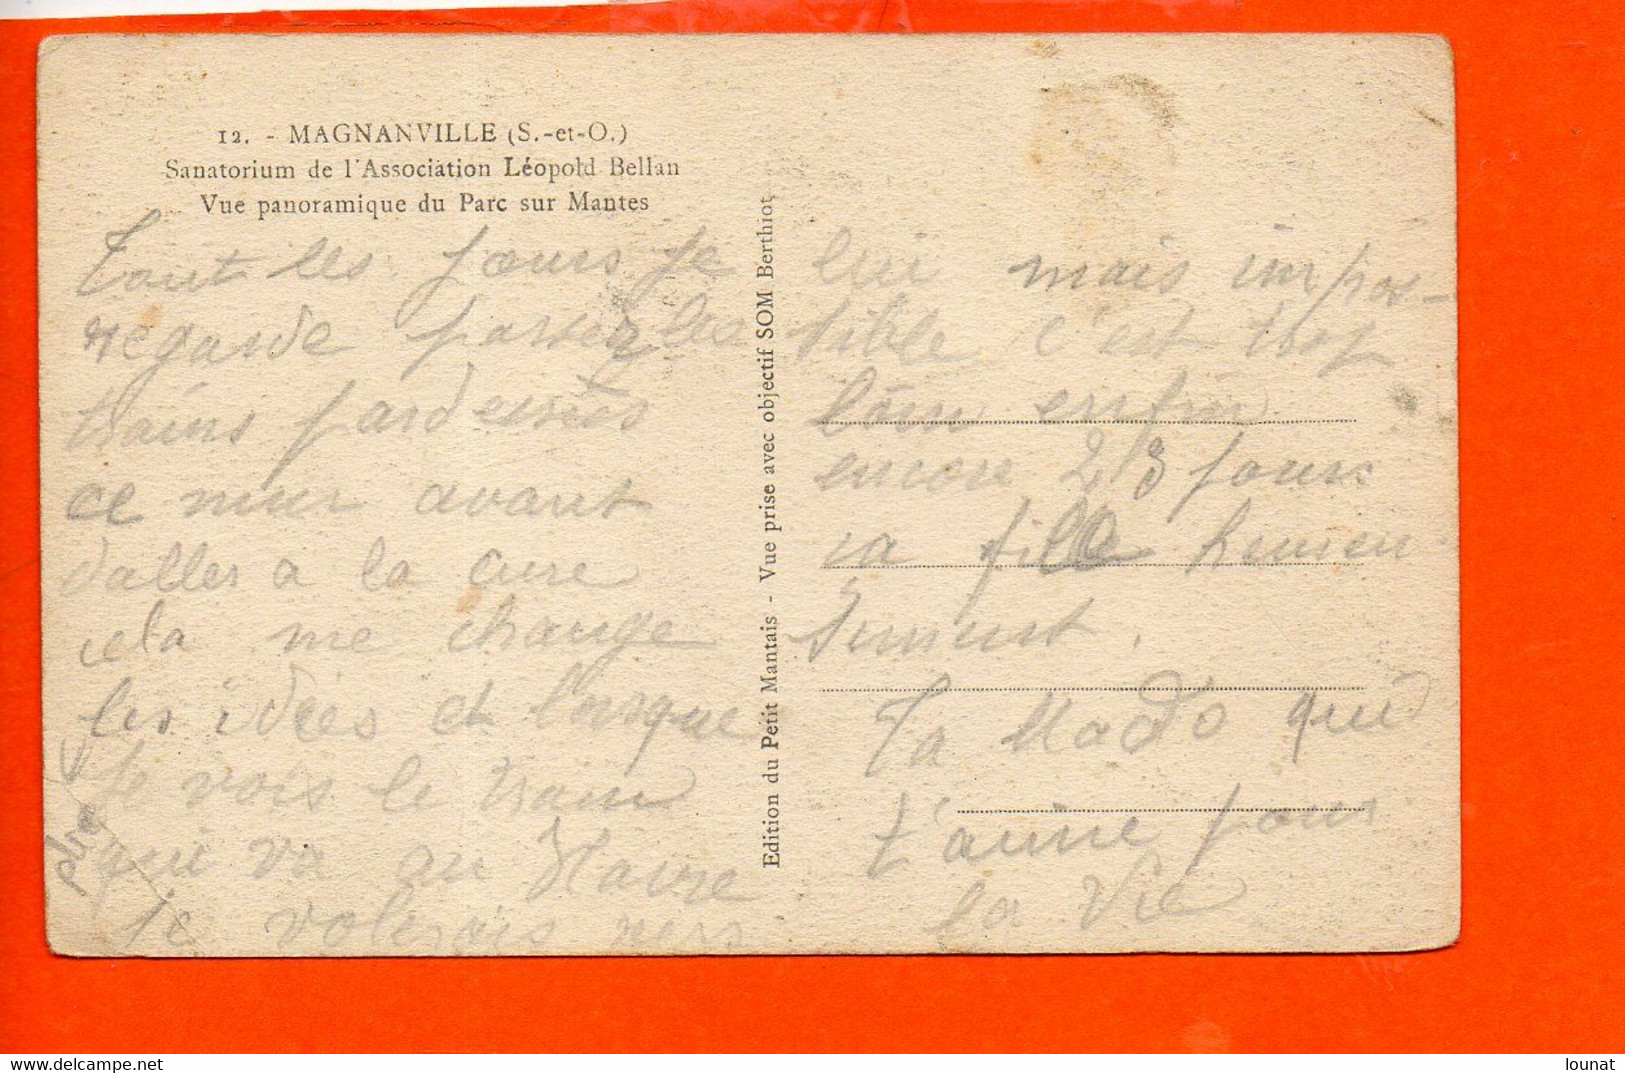 12. - MAGNANVILLE (S.-et-O.)
Sanatorium de l'Association Léopold Bellan
Vue panoramique du Parc sur Mantes
Tout les jours je
regarde passer les
trains par dessus
ce mur avant
daller a la cure
cela me change
les idées et lorsque
je vois le train
qui va au Havre
je volerais vers
Edition du Petit Mantais - Vue prise avec objectif SOM Berthiot
lui mais impos-
sible c'est trop
loin enfin
encore 23 jours
sa file heureu
sement.
Ta Mado qui
t'aime pour
la Vie
lounat